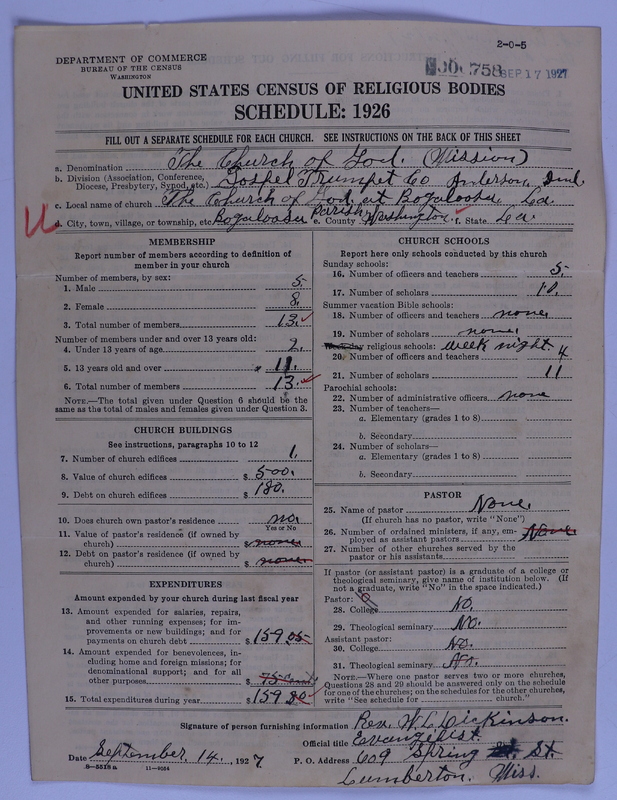 2-0-5
DEPARTMENT OF COMMERCE
BUREAU OF THE CENSUS
WASHINGTON
SEP 17 1927
UNITED STATES CENSUS OF RELIGIOUS BODIES
SCHEDULE: 1926
FILL OUT A SEPARATE SCHEDULE FOR EACH CHURCH. SEE INSTRUCTIONS ON THE BACK OF THIS SHEET
a. Denomination The Church of God. (Mission)
b. Division (Association, Conference, Diocese, Presbytery, Synod, etc.) Gospel Trumpet Co Anderson, Ind.
c. Local name of church The Church of God, at Bogaloosa, La
d. City, town, village, or township, etc. Bogaloosa e. County Parish Washington. f. State La.
MEMBERSHIP
Report number of members according to definition of
member in your church
Number of members, by sex:
1. Male 5.
2. Female 8.
3. Total number of members 13.
Number of members under and over 13 years old:
4. Under 13 years of age 2.
5. 13 years old and over 11.
6. Total number of members 13.
NOTE.—The total given under Question 6 should be the
same as the total of males and females given under Question 3.
CHURCH BUILDINGS
See instructions, paragraphs 10 to 12
7. Number of church edifices 1.
8. Value of church edifices $ 500.
9. Debt on church edifices $ 180.
10. Does church own pastor's residence no.
Yes or No
11. Value of pastor's residence (if owned by
church) $ none
12. Debt on pastor's residence (if owned by
church) $ none.
EXPENDITURES
Amount expended by your church during last fiscal year
13. Amount expended for salaries, repairs,
and other running expenses; for im-
provements or new buildings; and for
payments on church debt $ 159.05
14. Amount expended for benevolences, in-
cluding home and foreign missions; for
denominational support; and for all
other purposes $ 75 Cents
15. Total expenditures during year $ 159.80
CHURCH SCHOOLS
Report here only schools conducted by this church
Sunday schools:
16. Number of officers and teachers 5.
17. Number of scholars
Summer vacation Bible schools:
18. Number of officers and teachers none.
19. Number of scholars none.
Weekday religious schools: week night.
20. Number of officers and teachers 4
21. Number of scholars 11
Parochial schools:
22. Number of administrative officers none
23. Number of teachers—
a. Elementary (grades 1 to 8)
b. Secondary
24. Number of scholars—
a. Elementary (grades 1 to 8)
b. Secondary
PASTOR
25. Name of pastor None.
(If church has no pastor, write "None")
26. Number of ordained ministers, if any, em-
ployed as assistant pastors None
27. Number of other churches served by the
pastor or his assistants
If pastor (or assistant pastor) is a graduate of a college or
theological seminary, give name of institution below. (If
not a graduate, write "No" in the space indicated.)
Pastor:
28. College No.
29. Theological seminary No.
Assistant pastor:
30. College No.
31. Theological seminary No.
NOTE.—Where one pastor serves two or more churches,
Questions 28 and 29 should be answered only on the schedule
for one of the churches; on the schedules for the other churches,
write "See schedule for church."
Signature of person furnishing information Rev. W. L. Dickinson.
Official title Evangelist.
Date September, 14, 1927 P. O. Address 609 Spring St. St.
8-5518a 11-9054 Lumberton, Miss.